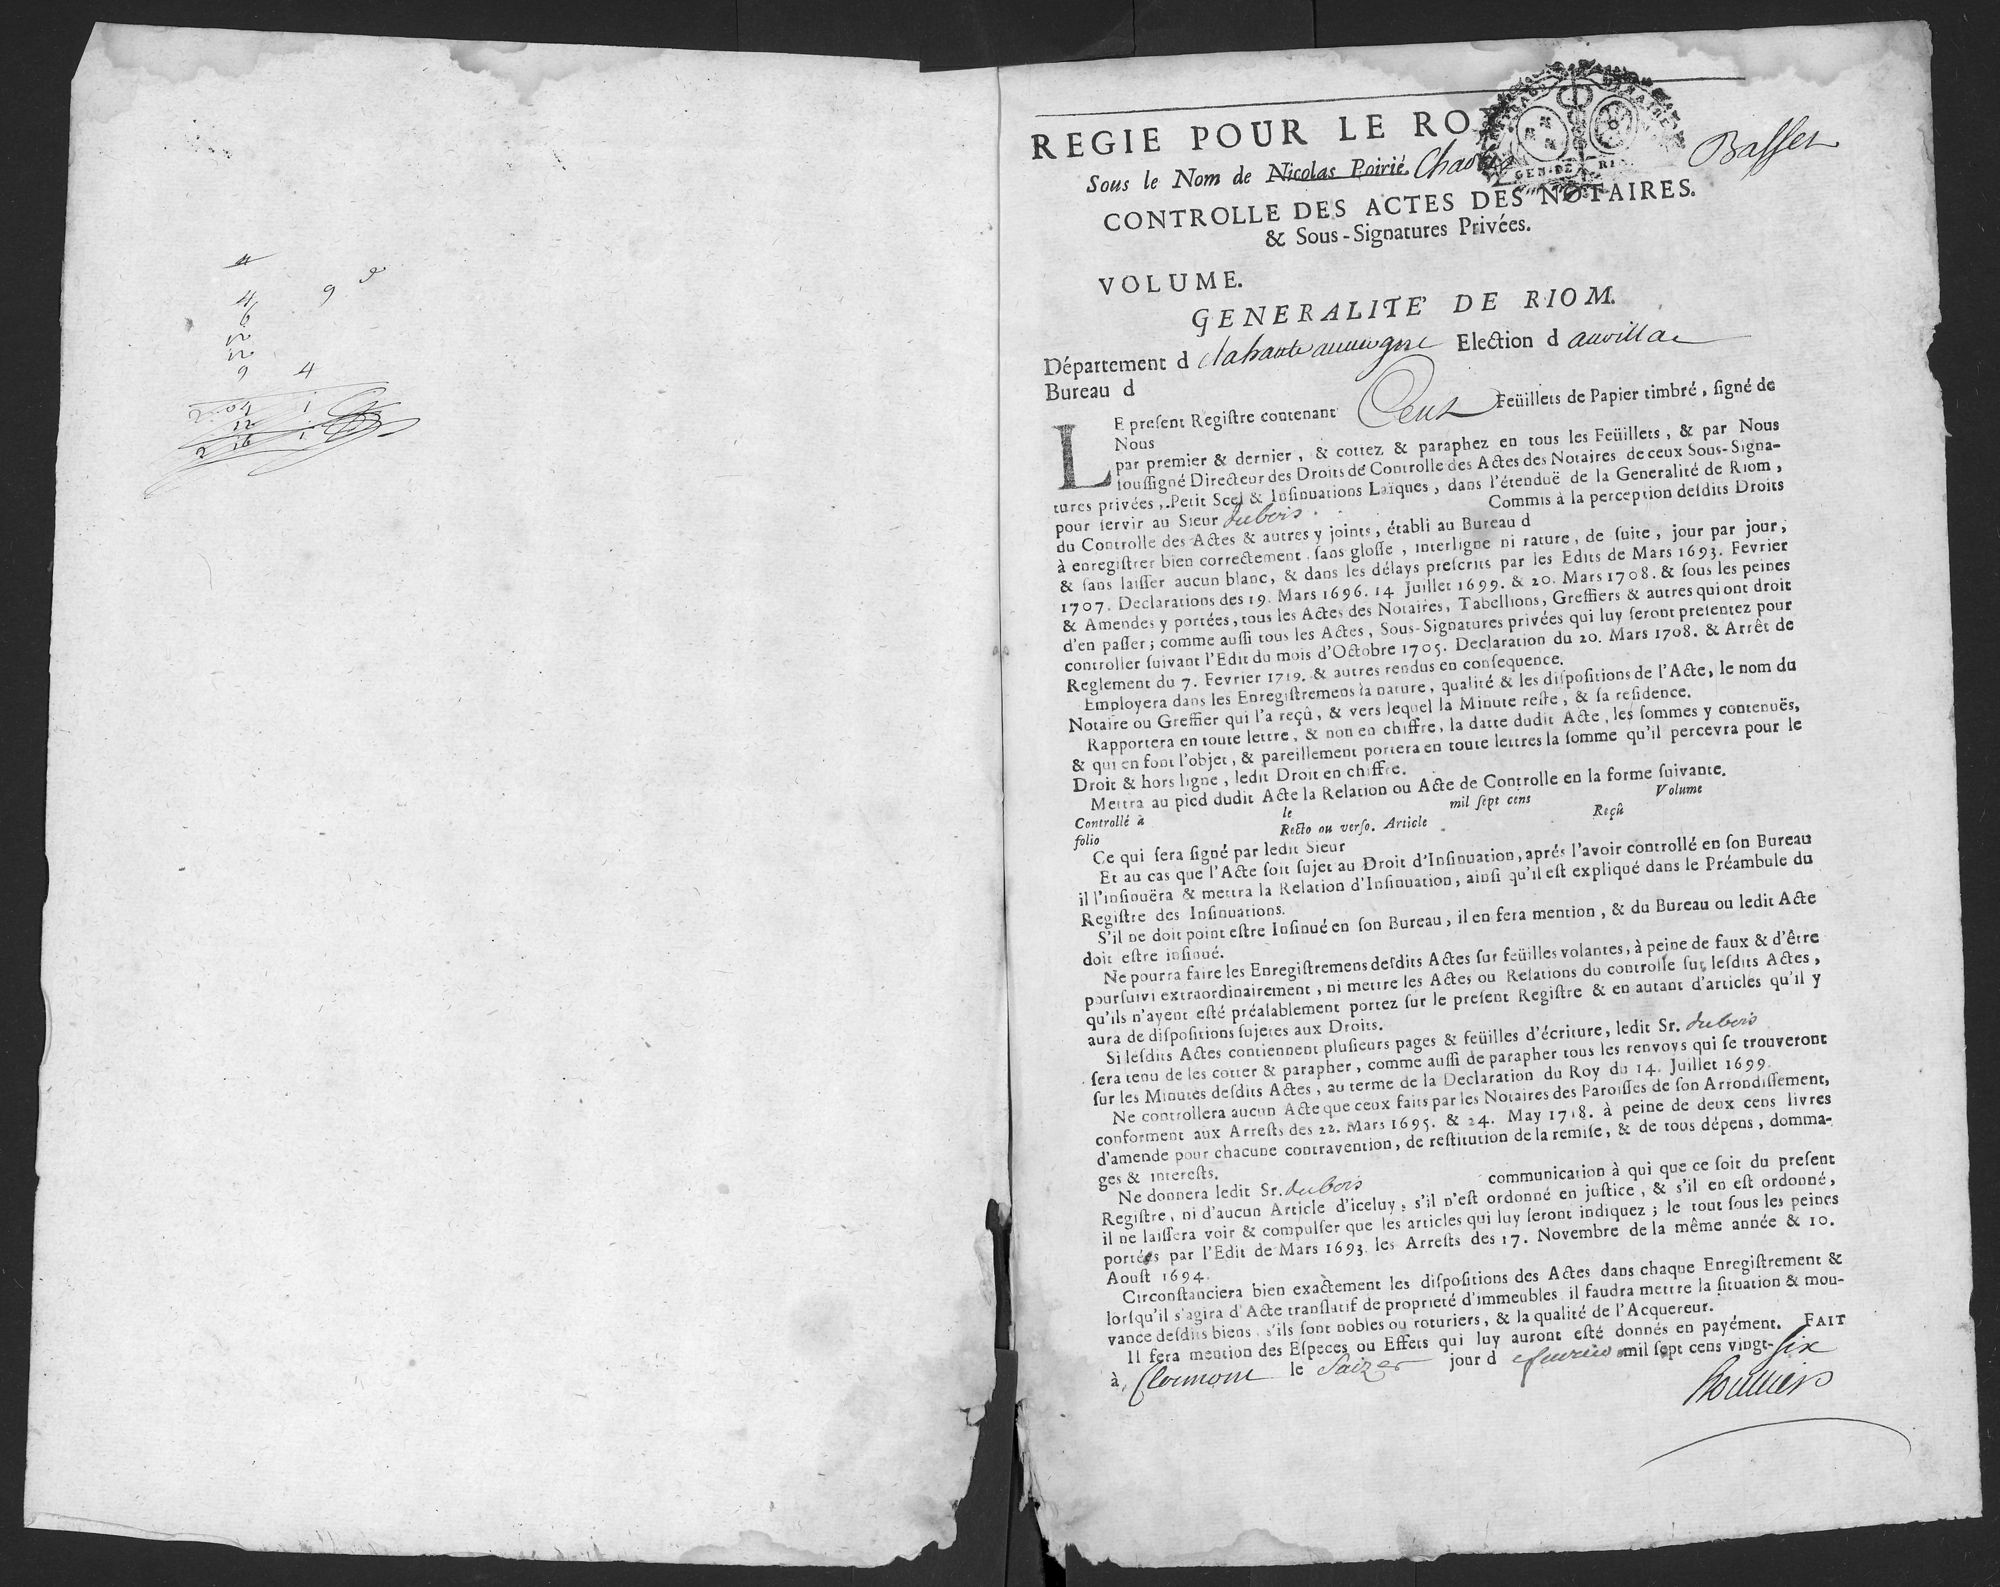 4 9
6
12
12
9 4
2 04 1
12
2 16 1
REGIE POUR LE ROY
Sous le Nom de Nicolas Poirié. Basset
CONTROLLE DES ACTES DES NOTAIRES.
& Sous-Signatures Privées.
VOLUME.
GENERALITE' DE RIOM.
Département d Election d
Bureau d
LE present Registre contenant Cent Feüillets de Papier timbré, signé de
Nous
par premier & dernier, & cottez & paraphez en tous les Feüillets, & par Nous
soussigné Directeur des Droits de Controlle des Actes des Notaires de ceux Sous-Signa-
tures privées, Petit Scel & Insinuations Laïques, dans l'étenduë de la Generalité de Riom,
pour servir au Sieur dubois Commis à la perception desdits Droits
du Controlle des Actes & autres y joints, établi au Bureau d
à enregistrer bien correctement, sans glosse, interligne ni rature, de suite, jour par jour,
& sans laisser aucun blanc, & dans les délays prescrits par les Edits de Mars 1693. Fevrier
1707. Declarations des 19. Mars 1696. 14 Juillet 1699. & 20. Mars 1708. & sous les peines
& Amendes y portées, tous les Actes des Notaires, Tabellions, Greffiers & autres qui ont droit
d'en passer; comme aussi tous les Actes, Sous-Signatures privées qui luy seront presentez pour
controller suivant l'Edit du mois d'Octobre 1705. Declaration du 20. Mars 1708. & Arrêt de
Reglement du 7. Fevrier 1719. & autres rendus en consequence.
Employera dans les Enregistremens la nature, qualité & les dispositions de l'Acte, le nom du
Notaire ou Greffier qui l'a reçû, & vers lequel la Minute reste, & sa residence.
Rapportera en toute lettre, & non en chiffre, la datte dudit Acte, les sommes y contenuës,
& qui en font l'objet, & pareillement portera en toute lettres la somme qu'il percevra pour le
Droit & hors ligne, ledit Droit en chiffre.
Mettra au pied dudit Acte la Relation ou Acte de Controlle en la forme suivante.
Controllé à le mil sept cens Volume
folio Recto ou verso. Article Reçû
Ce qui sera signé par ledit Sieur
Et au cas que l'Acte soit sujet au Droit d'Insinuation, aprés l'avoir controllé en son Bureau
il l'insinuëra & mettra la Relation d'Insinuation, ainsi qu'il est expliqué dans le Préambule du
Registre des Insinuations.
S'il ne doit point estre Insinué en son Bureau, il en fera mention, & du Bureau ou ledit Acte
doit estre insinué.
Ne pourra faire les Enregistremens desdits Actes sur feüilles volantes, à peine de faux & d'être
poursuivi extraordinairement, ni mettre les Actes ou Relations du controlle sur lesdits Actes,
qu'ils n'ayent esté préalablement portez sur le present Registre & en autant d'articles qu'il y
aura de dispositions sujetes aux Droits.
Si lesdits Actes contiennent plusieurs pages & feüilles d'écriture, ledit Sr. dubois
sera tenu de les cotter & parapher, comme aussi de parapher tous les renvoys qui se trouveront
sur les Minutes desdits Actes, au terme de la Declaration du Roy du 14. Juillet 1699.
Ne controllera aucun Acte que ceux faits par les Notaires des Paroisses de son Arrondissement,
conforment aux Arrests des 22. Mars 1695. & 24. May 1718. à peine de deux cens livres
d'amende pour chacune contravention, de restitution de la remise, & de tous dépens, domma-
ges & interests.
Ne donnera ledit Sr. dubois communication à qui que ce soit du present
Registre, ni d'aucun Article d'iceluy, s'il n'est ordonné en justice, & s'il en est ordonné,
il ne laissera voir & compulser que les articles qui luy seront indiquez; le tout sous les peines
portées par l'Edit de Mars 1693. les Arrests des 17. Novembre de la même année & 10.
Aoust 1694.
Circonstanciera bien exactement les dispositions des Actes dans chaque Enregistrement &
lorsqu'il s'agira d'Acte translatif de proprieté d'immeubles il faudra mettre la situation & mou-
vance desdits biens, s'ils sont nobles ou roturiers, & la qualité de l'Acquereur.
Il fera mention des Especes ou Effets qui luy auront esté donnés en payément. FAIT
à Clermont le jour d fevrier mil sept cens vingt-six